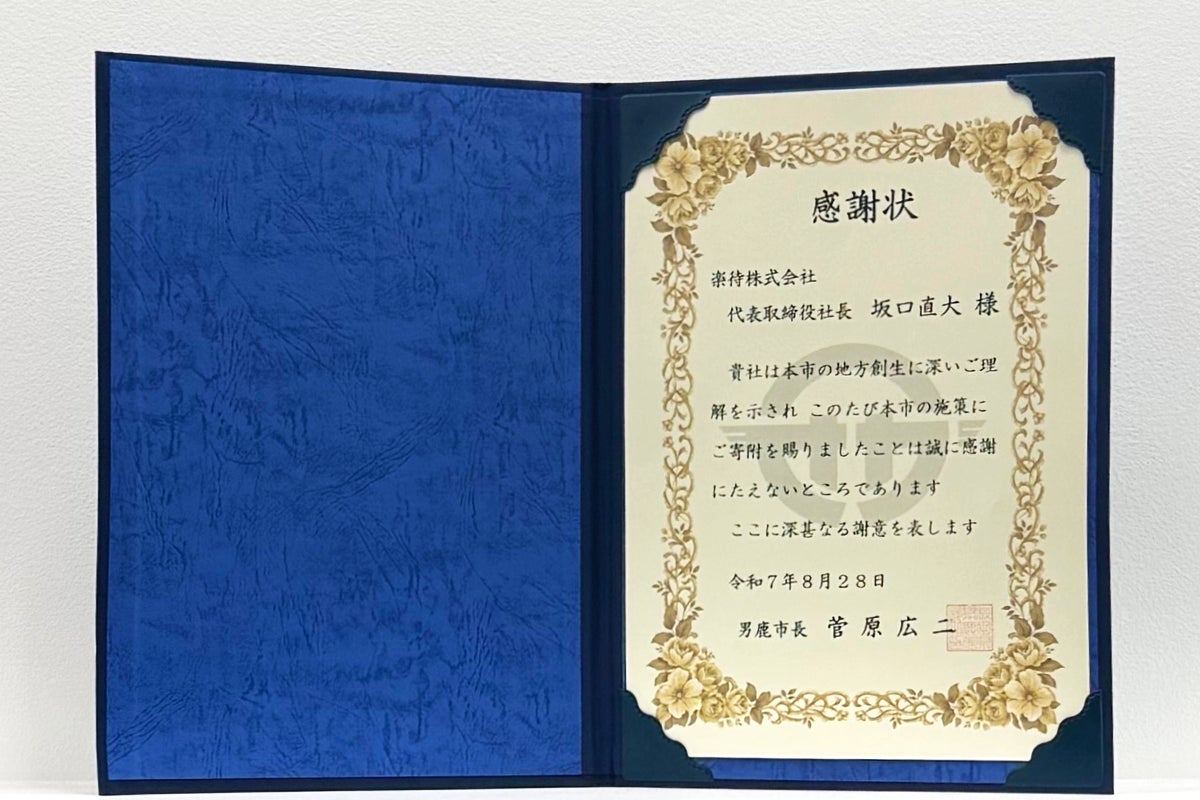 感謝状
楽待株式会社
代表取締役社長 坂口直大 様
貴社は本市の地方創生に深いご理
解を示され このたび本市の施策に
ご寄附を賜りましたことは誠に感謝
にたえないところであります
ここに深甚なる謝意を表します
令和7年8月28日
男鹿市長 菅原広二